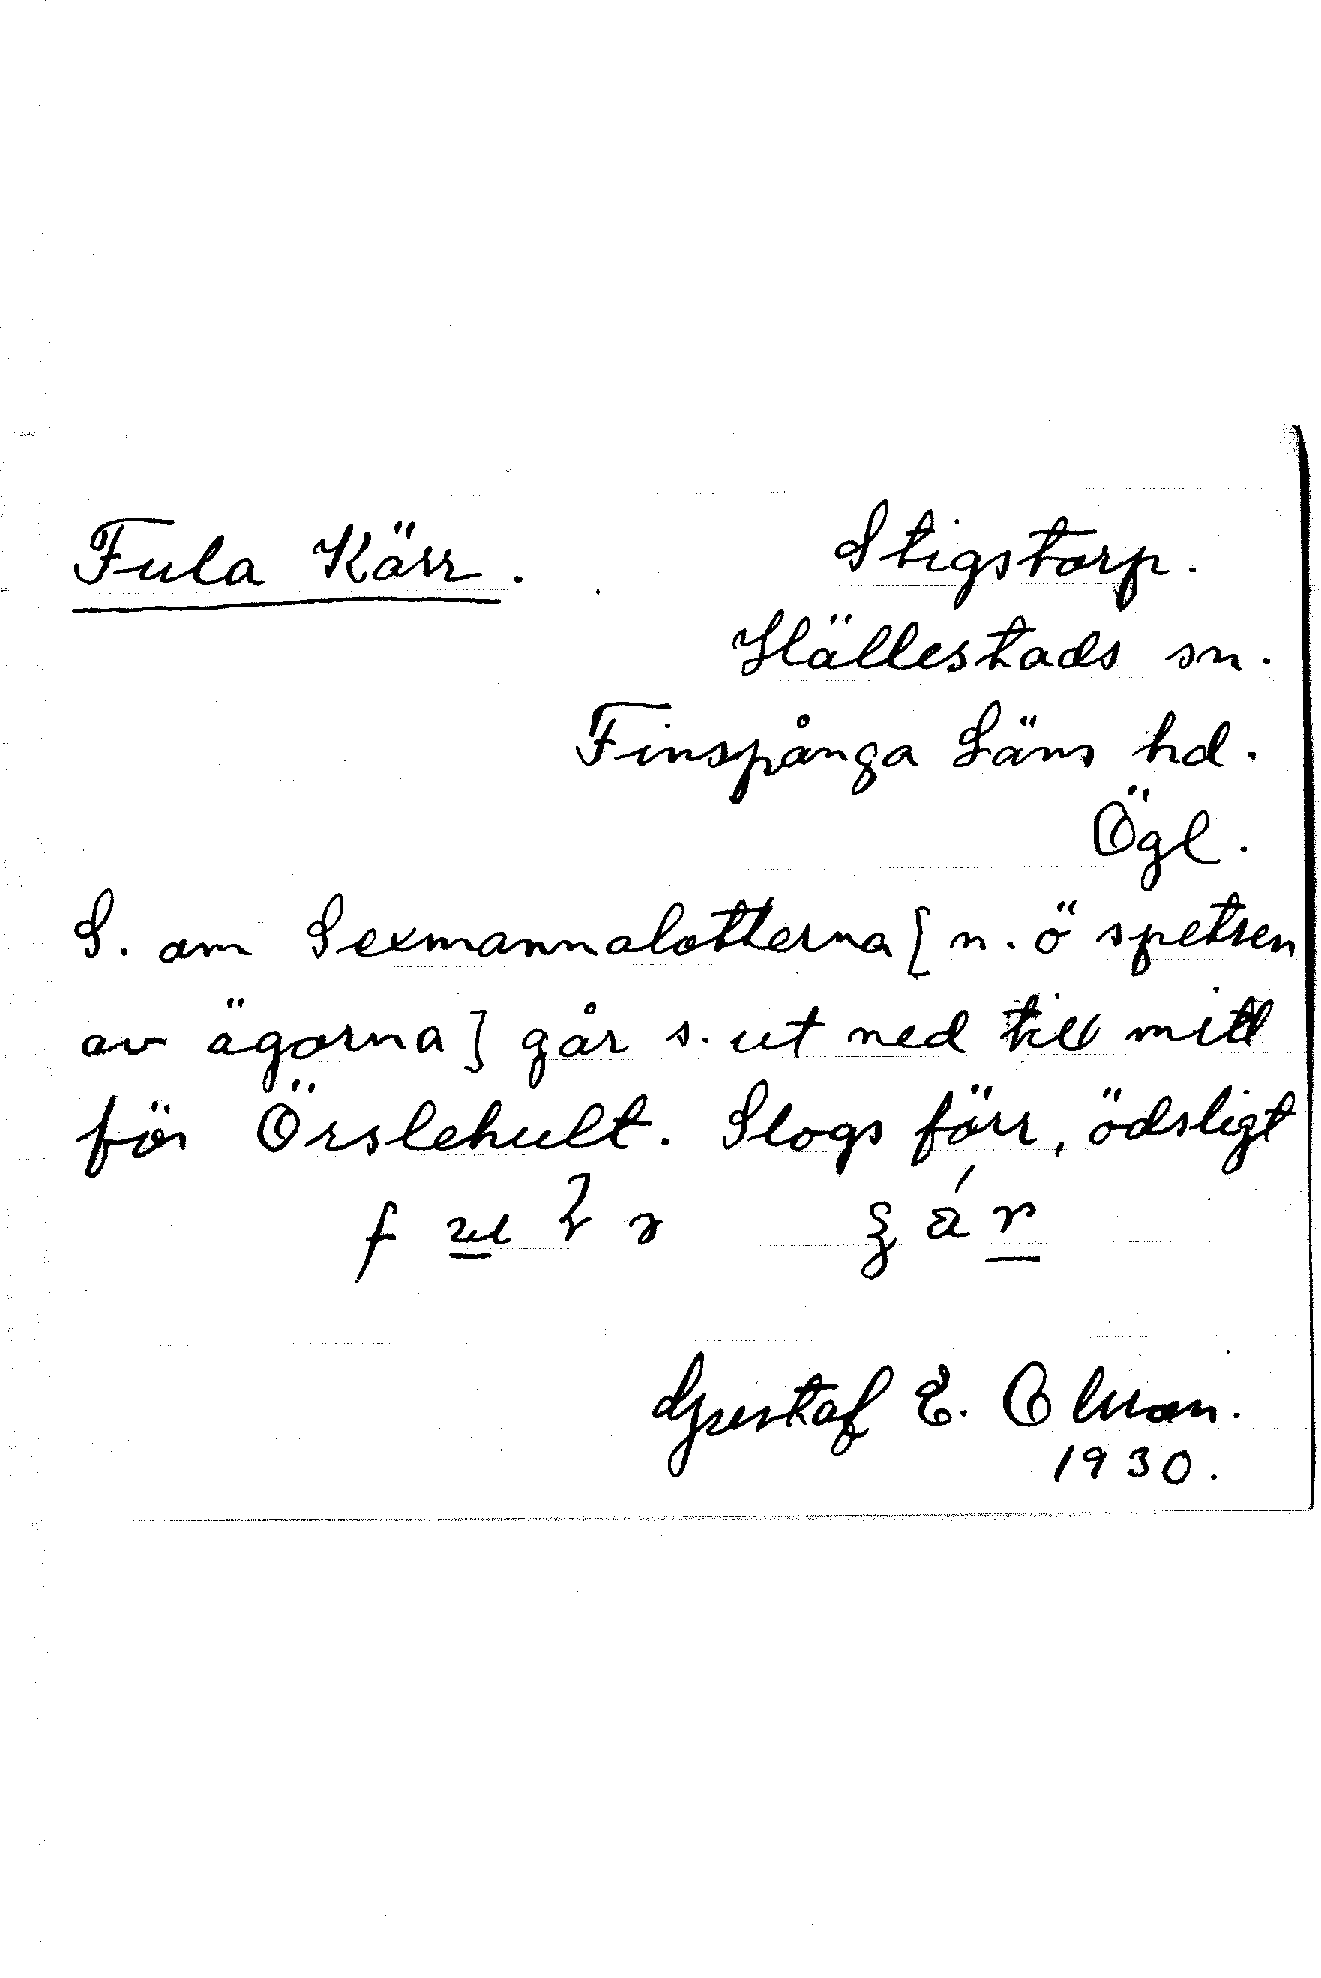 Fula Kärr.
Stigstorp.
Hällestads sn.
Finspånga Läns hd.
Ögl.
S. om Sexmannalotterna [n. ö spetsen
av ägorna] går s. ut ned till mitt
för Örslehult. Slogs förr, ödsligt
Gustaf E. Olson.
1930.